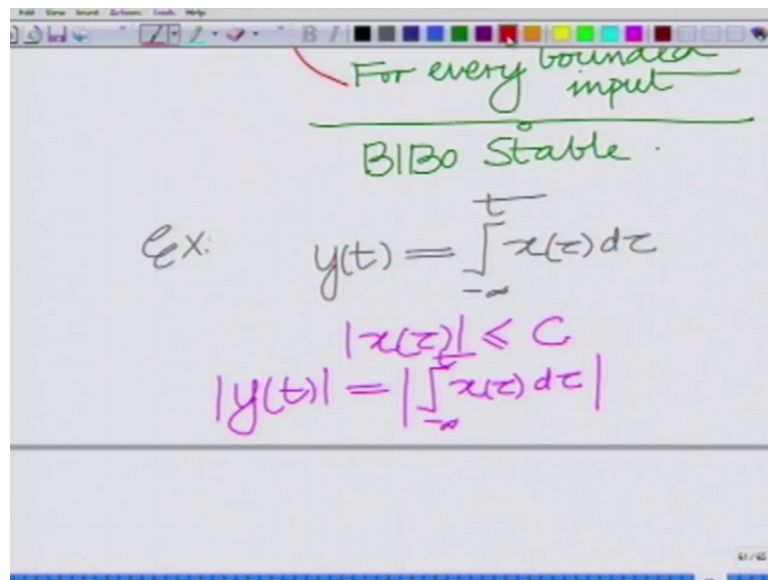 For every bounded
input
BIBO Stable.
Ex: y(t) = ∫_{-∞}^{t} x(τ) dτ
|x(τ)| ≤ C
|y(t)| = |∫_{-∞}^{t} x(τ) dτ|
61/65